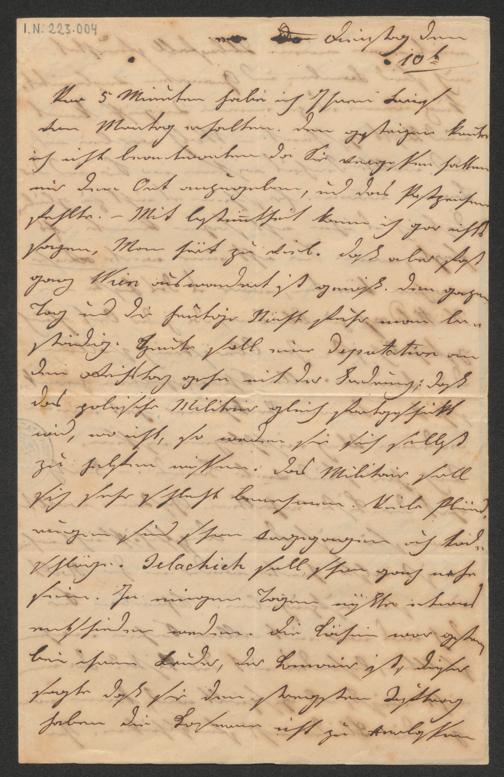 I.N. 223.004
Dinstag den
10t
Vor 5 Minuten habe ich Ihren Brief
vom Montag erhalten. Den gestrigen konnte
ich nicht beantworten da Sie vergessen hatten
mir den Ort anzugeben, und das Postzeichen
fehlte. – Mit bestimtheit kann ich gar nichts
sagen, Man hört zu viel. daß aber fast
ganz Wien auswandert ist gewiß. den ganzen
Tag und die heutige Nacht fuhr man be-
ständig. Heute soll eine Deputation an
den Reichstag gehn mit der Forderung: daß
das polnische Militair gleich fortgeschikt
wird, wo nicht, so werden sie sich selbst
zu helfen wissen. Das Militair soll
sich sehr schlecht benehmen. Viele Plünde-
rungen sind schon vorgegangen auch Tod-
schläge. Jelachich soll schon ganz nahe
sein. In einigen Tagen müßte etwas
entschieden werden. Die war gestern
bei ihrem Bruder, der ist, dieser
sagte daß sie den strengsten
haben die nicht zu verlassen